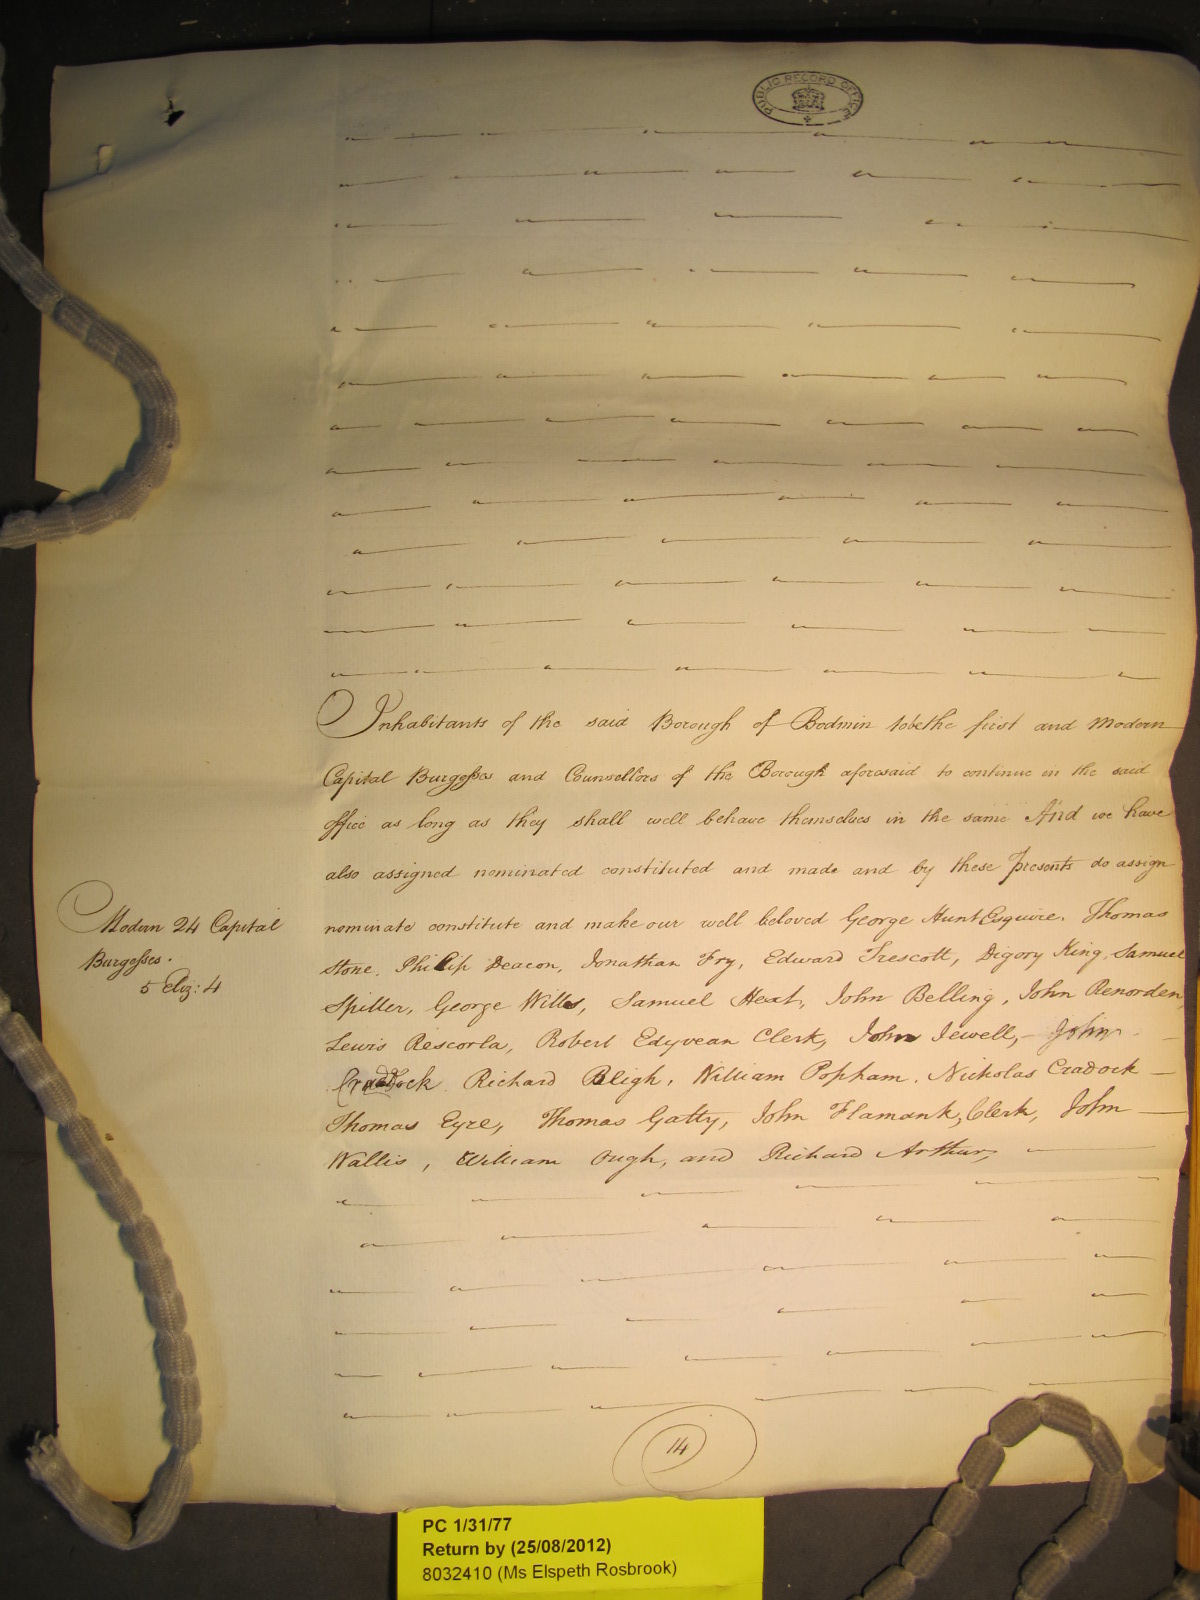 PUBLIC RECORD OFFICE
Inhabitants of the said Borough of Bodmin to be the first and Modern
Capital Burgesses and Counsellors of the Borough aforesaid to continue in the said
office as long as they shall well behave themselves in the same And we have
also assigned nominated constituted and made and by these Presents do assign
Modern 24 Capital
Burgesses.
5 Eliz: 4
nominate constitute and make our well beloved George Hunt Esquire. Thomas
Stone. Philip Deacon, Jonathan Fry, Edward Trescott, Digory King, Samuel
Spiller, George Wills, Samuel Heat, John Belling, John Renorden,
Lewis Rescorla, Robert Edyvean Clerk, John Jewell, John
Craddock Richard Bligh, William Popham. Nicholas Cradock
Thomas Eyre, Thomas Gatty, John Flamank, Clerk, John
Wallis, William Ough, and Richard Arthur,
14
PC 1/31/77
Return by (25/08/2012)
8032410 (Ms Elspeth Rosbrook)